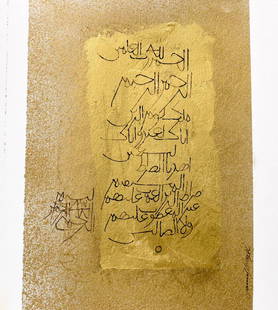 الحمد لله رب العلمين
الرحمن الرحيم
ملك يوم الدين
اياك نعبد واياك
نستعين
اهدنا الصرط
المستقيم
صرط الذين انعمت عليهم
غير المغضوب عليهم
ولا الضالين